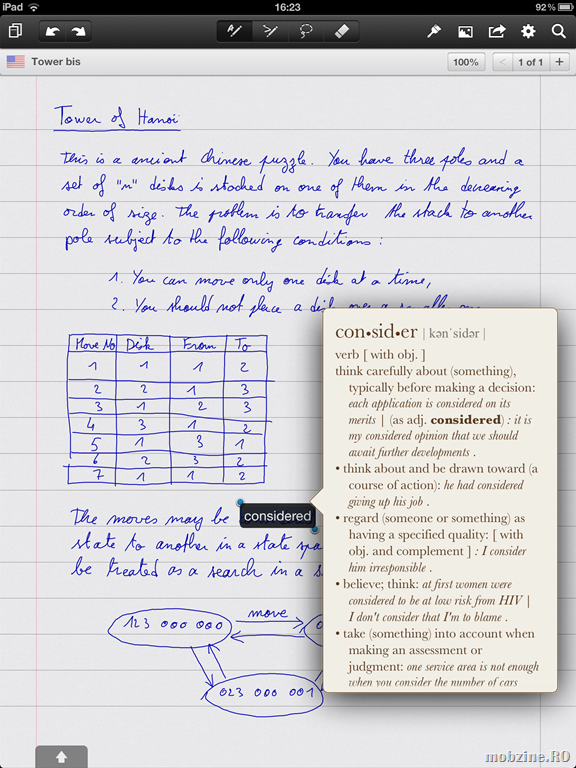 iPad 16:23 92%
Tower bis 100% < 1 of 1 +
Tower of Hanoi
This is a ancient Chinese puzzle. You have three poles and a
set of "n" disks is stacked on one of them in the decreasing
order of size. The problem is to transfer the stack to another
pole subject to the following conditions :
1. You can move only one disk at a time,
2. You should not place a disk over a
Move No Disk From To
1 1 1 2
2 2 1 3
3 1 2 3
4 3 1 2
5 1 3 1
6 2 3 2
7 1 1 2
The moves may be considered
state to another in a state
be treated as a search in a
123 000 000 move
023 000 001
con•sid•er | kənˈsidər |
verb [ with obj. ]
think carefully about (something),
typically before making a decision:
each application is considered on its
merits | (as adj. considered) : it is
my considered opinion that we should
await further developments .
• think about and be drawn toward (a
course of action): he had considered
giving up his job .
• regard (someone or something) as
having a specified quality: [ with
obj. and complement ] : I consider
him irresponsible .
• believe; think: at first women were
considered to be at low risk from HIV |
I don't consider that I'm to blame .
• take (something) into account when
making an assessment or
judgment: one service area is not enough
when you consider the number of cars
mobzine.RO